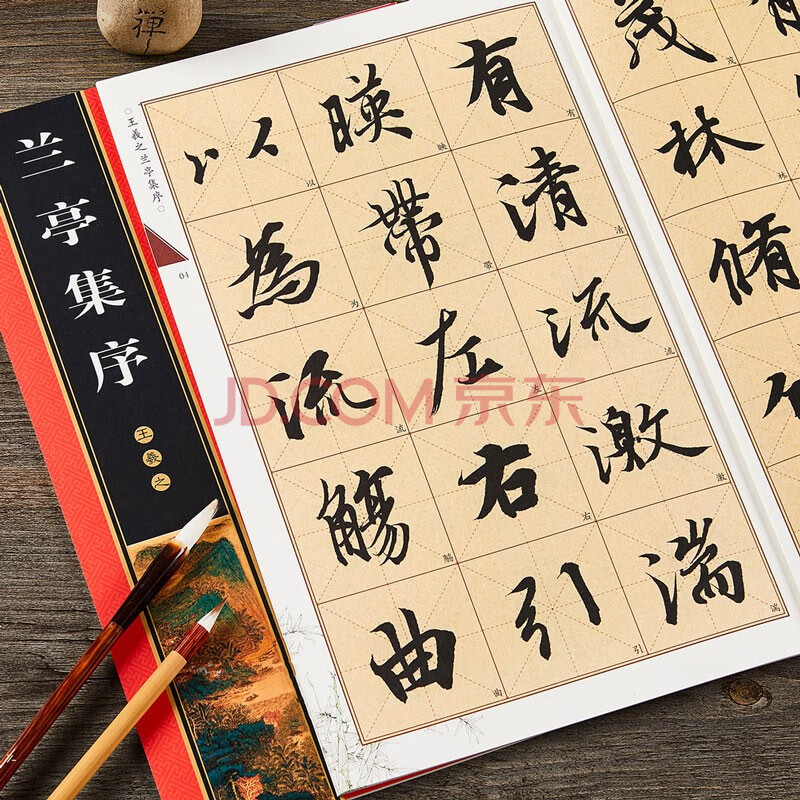 禅
兰亭集序
王羲之
王羲之兰亭集序
04
茂林脩
茂
林
有清流激湍
有
清
流
激
湍
暎帶左右引
映
带
左
右
引
以為流觴曲
以
为
流
觞
曲
JD.COM 京东